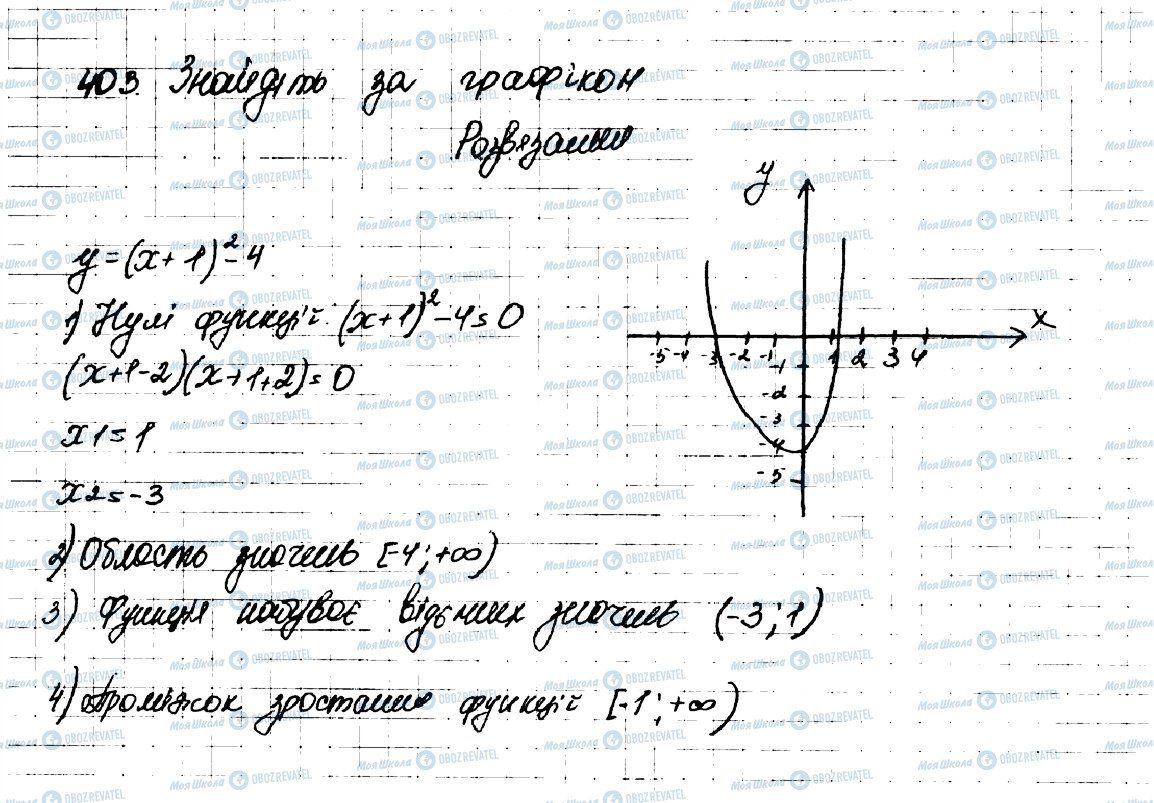 403. Знайдіть за графіком
Розвязання
y = (x+1)² - 4
1) Нулі функції (x+1)² - 4 = 0
(x+1-2)(x+1+2) = 0
x1 = 1
x2 = -3
2) Область значень [-4; +∞)
3) Функція набуває відємних значень (-3; 1)
4) Проміжок зростання функції [-1; +∞)
y
x
-5 -4 -3 -2 -1 1 2 3 4
-1
-2
-3
-4
-5
Моя Школа OBOZREVATEL